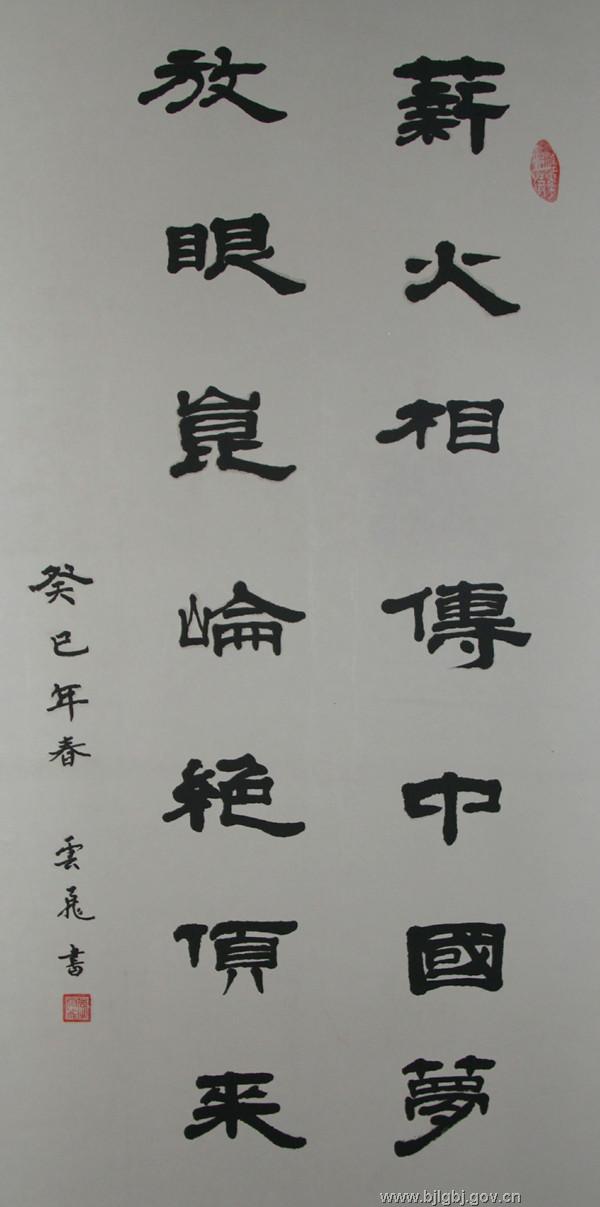 薪火相傳中國夢
放眼崑崙絶頂来
癸巳年春 雲飛書
www.bjlgbj.gov.cn